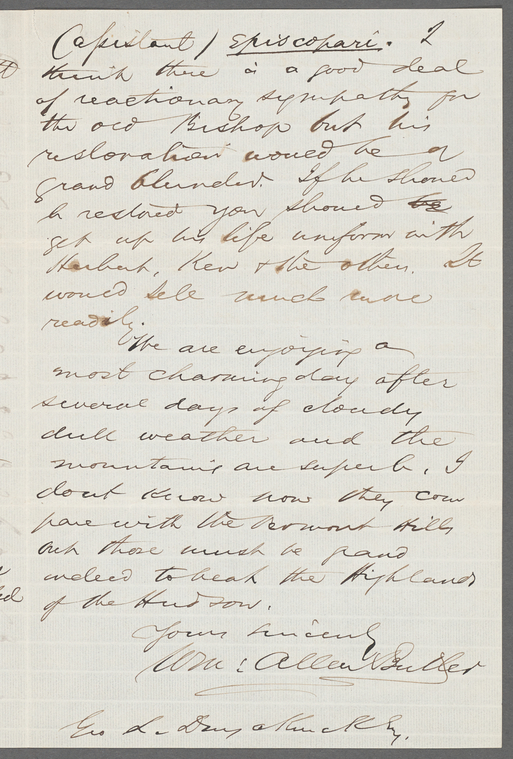 (assistant) Episcopari. I
think there is a good deal
of reactionary sympathy for
the old Bishop but his
restoration would be a
grand blunder. If he should
be restored you should be
get up his life uniform with
Herbert, Ken & the others. It
would sell much more
readily.
We are enjoying a
most charming day after
several days of cloudy
dull weather and the
mountains are superb. I
dont know how they com
pare with the Vermont Hills
but those must be grand
indeed to beat the Highlands
of the Hudson.
Yours sincerely
Wm: Allen Butler
Geo L. Duyckinck Esq.